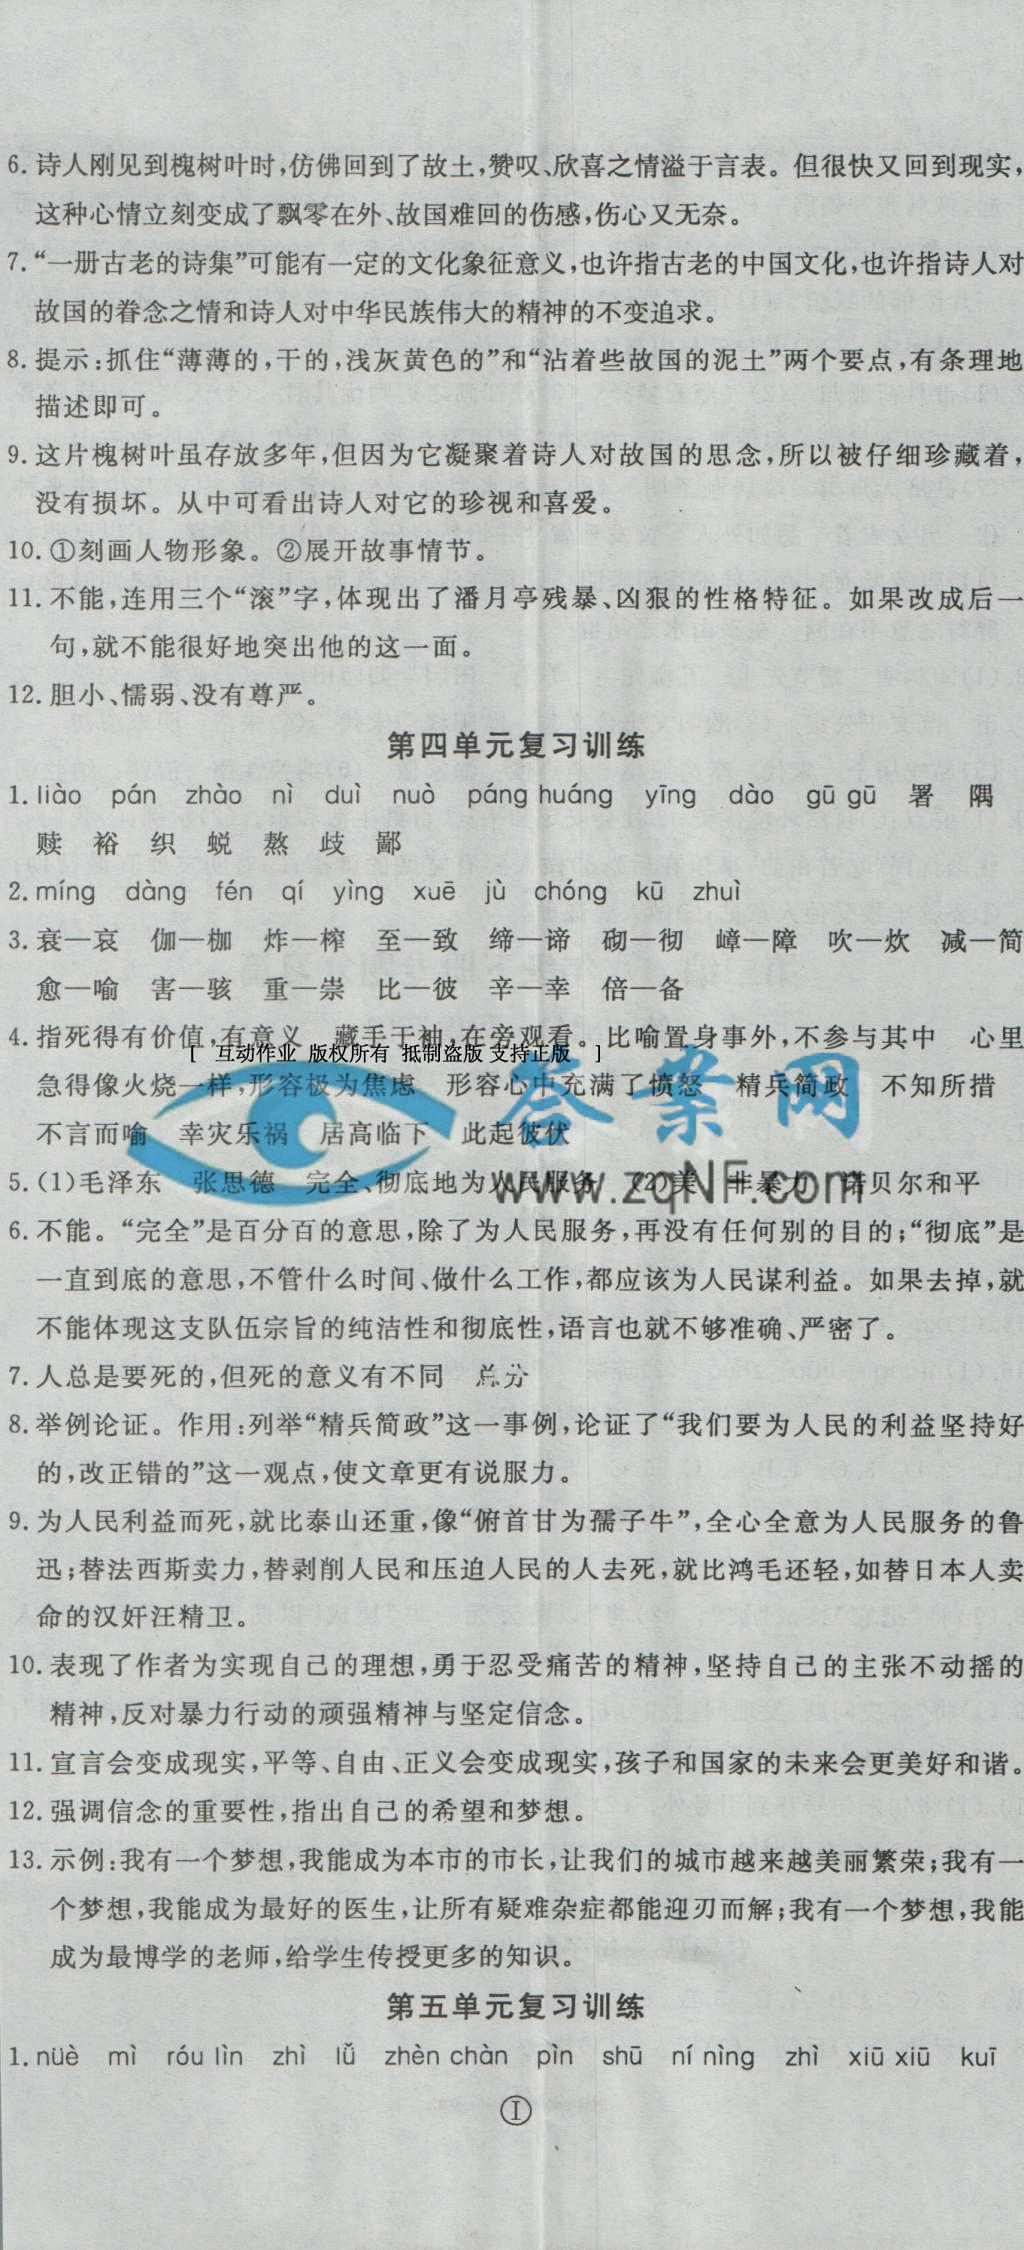 6. 诗人刚见到槐树叶时,仿佛回到了故土,赞叹、欣喜之情溢于言表。但很快又回到现实,
这种心情立刻变成了飘零在外、故国难回的伤感,伤心又无奈。
7. “一册古老的诗集”可能有一定的文化象征意义,也许指古老的中国文化,也许指诗人对
故国的眷念之情和诗人对中华民族伟大的精神的不变追求。
8. 提示:抓住“薄薄的,干的,浅灰黄色的”和“沾着些故国的泥土”两个要点,有条理地
描述即可。
9. 这片槐树叶虽存放多年,但因为它凝聚着诗人对故国的思念,所以被仔细珍藏着,
没有损坏。从中可看出诗人对它的珍视和喜爱。
10. ①刻画人物形象。②展开故事情节。
11. 不能,连用三个“滚”字,体现出了潘月亭残暴、凶狠的性格特征。如果改成后一
句,就不能很好地突出他的这一面。
12. 胆小、懦弱、没有尊严。
第四单元复习训练
1. liào pán zhào nì duì nuò páng huáng yīng dào gū gū 署 隅
赎 裕 织 蜕 熬 歧 鄙
2. míng dàng fén qí yìng xuē jù chóng kū zhuì
3. 衰—哀 伽—枷 炸—榨 至—致 缔—谛 砌—彻 嶂—障 吹—炊 减—简
愈—喻 害—骇 重—崇 比—彼 辛—幸 倍—备
4. 指死得有价值,有意义 藏手于袖,在旁观看。比喻置身事外,不参与其中 心里
[ 互动作业 版权所有 抵制盗版 支持正版 ]
急得像火烧一样,形容极为焦虑 形容心中充满了愤怒 精兵简政 不知所措
答案网
不言而喻 幸灾乐祸 居高临下 此起彼伏
5. (1)毛泽东 张思德 完全、彻底地为人民服务 (2)美 非暴力 诺贝尔和平
www.zqNF.com
6. 不能。“完全”是百分百的意思,除了为人民服务,再没有任何别的目的;“彻底”是
一直到底的意思,不管什么时间、做什么工作,都应该为人民谋利益。如果去掉,就
不能体现这支队伍宗旨的纯洁性和彻底性,语言也就不够准确、严密了。
7. 人总是要死的,但死的意义有不同 总分
8. 举例论证。作用:列举“精兵简政”这一事例,论证了“我们要为人民的利益坚持好
的,改正错的”这一观点,使文章更有说服力。
9. 为人民利益而死,就比泰山还重,像“俯首甘为孺子牛”,全心全意为人民服务的鲁
迅;替法西斯卖力,替剥削人民和压迫人民的人去死,就比鸿毛还轻,如替日本人卖
命的汉奸汪精卫。
10. 表现了作者为实现自己的理想,勇于忍受痛苦的精神,坚持自己的主张不动摇的
精神,反对暴力行动的顽强精神与坚定信念。
11. 宣言会变成现实,平等、自由、正义会变成现实,孩子和国家的未来会更美好和谐。
12. 强调信念的重要性,指出自己的希望和梦想。
13. 示例:我有一个梦想,我能成为本市的市长,让我们的城市越来越美丽繁荣;我有一
个梦想,我能成为最好的医生,让所有疑难杂症都能迎刃而解;我有一个梦想,我能
成为最博学的老师,给学生传授更多的知识。
第五单元复习训练
1. nüè mì róu lìn zhì lǚ zhèn chàn pìn shū ní nìng zhì xiū xiū kuī
Ⓘ